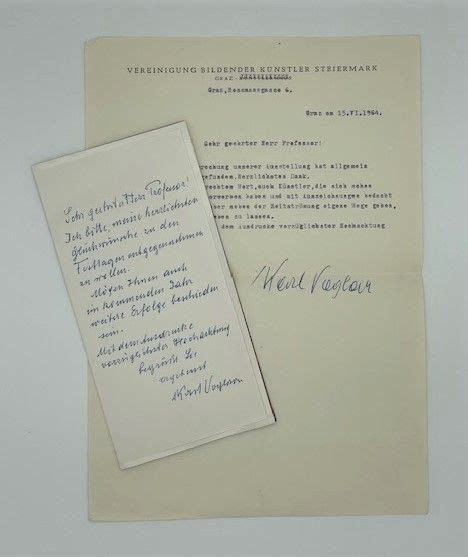 VEREINIGUNG BILDENDER KÜNSTLER STEIERMARK
GRAZ -
Graz,
gasse 6.
Graz am 15.VI.1964.
Sehr geehrter Herr Professor!
sprechung unserer Ausstellung hat allgemein
gefunden. Herzlichsten Dank.
echtem Wert, auch Künstler, die sich neben
erworben haben und mit Auszeichnungen bedacht
aber neben der Zeitströmung eigene Wege gehen,
zu lassen.
dem Ausdrucke vorzüglichster Hochachtung
Karl Voglar
Sehr geehrter Herr Professor!
Ich bitte, meine herzlichsten
Glückwünsche zu den
Festtagen entgegennehmen
zu wollen.
Mögen Ihnen auch
im kommenden Jahr
weitere Erfolge beschieden
sein.
Mit dem Ausdrucke
vorzüglichster Hochachtung
begrüßt Sie
ergebenst
Karl Voglar